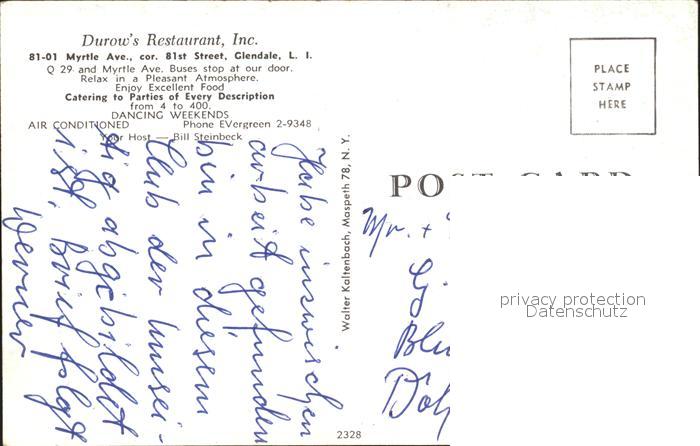 Durow's Restaurant, Inc.
81-01 Myrtle Ave., cor. 81st Street, Glendale, L. I.
Q 29 and Myrtle Ave. Buses stop at our door.
Relax in a Pleasant Atmosphere.
Enjoy Excellent Food
Catering to Parties of Every Description
from 4 to 400.
DANCING WEEKENDS
AIR CONDITIONED Phone EVergreen 2-9348
Your Host — Bill Steinbeck
Habe inzwischen
arbeit gefunden
bin in diesem
Club der umsei-
tig abgebildet
ist. Brief folgt
Werner
Walter Kaltenbach, Maspeth 78, N. Y.
2328
PLACE
STAMP
HERE
POST CARD
Mr. +
Blu
privacy protection
Datenschutz